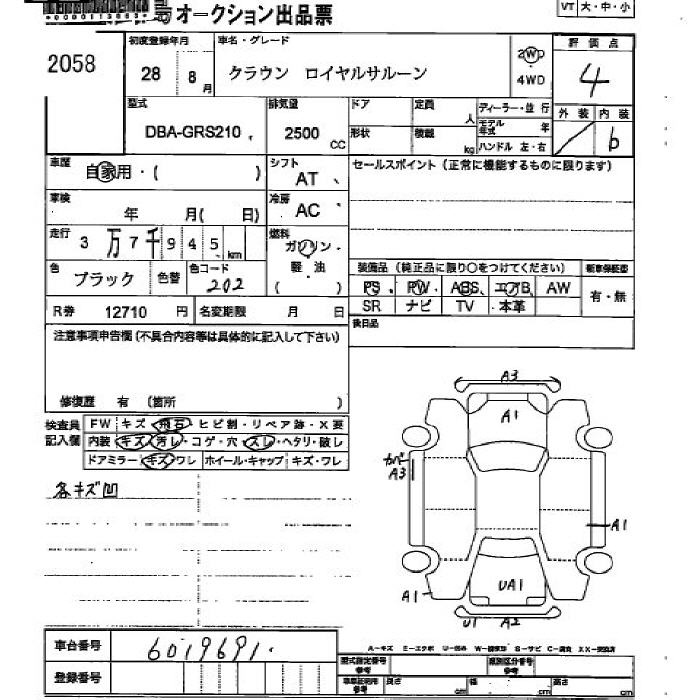 オークション出品票
VT 大・中・小
2058
初度登録年月 車名・グレード 評価点
28 8月 クラウン ロイヤルサルーン 2WD 4WD 4
型式 排気量 ドア 定員 人 ディーラー・並行 外装 内装
DBA-GRS210 2500 CC 形状 積載 kg モデル年式 年 b
ハンドル 左・右
車歴 自家用・( ) シフト AT セールスポイント(正常に機能するものに限ります)
車検 年 月( 日) 冷房 AC
走行 3万7千945km 燃料 ガソリン・軽・油 ( )
色 ブラック 色替 色コード 202
装備品(純正品に限り○をつけてください) 新車保証書
PS PW ABS エアB AW 有・無
SR ナビ TV 本革
R券 12710円 名変期限 月 日 後日品
注意事項申告欄(不具合内容等は具体的に記入して下さい)
修復歴 有 (箇所 )
検査員記入欄 FW キズ・飛石・ヒビ割・リペア跡・X要
内装 キズ・汚レ・コゲ・穴・スレ・ヘタリ・破レ
ドアミラー キズ・ワレ ホイール・キャップ キズ・ワレ
各キズ凹
A3
A1
カバー
A3
A1
UA1
A1
U1 A2
車台番号 6019691
登録番号
A-キズ E-エクボ U-凹み
型式指定番号 参考 類別区分番号 参考
車庫証明用 参考 長さ cm 幅 cm 高さ cm